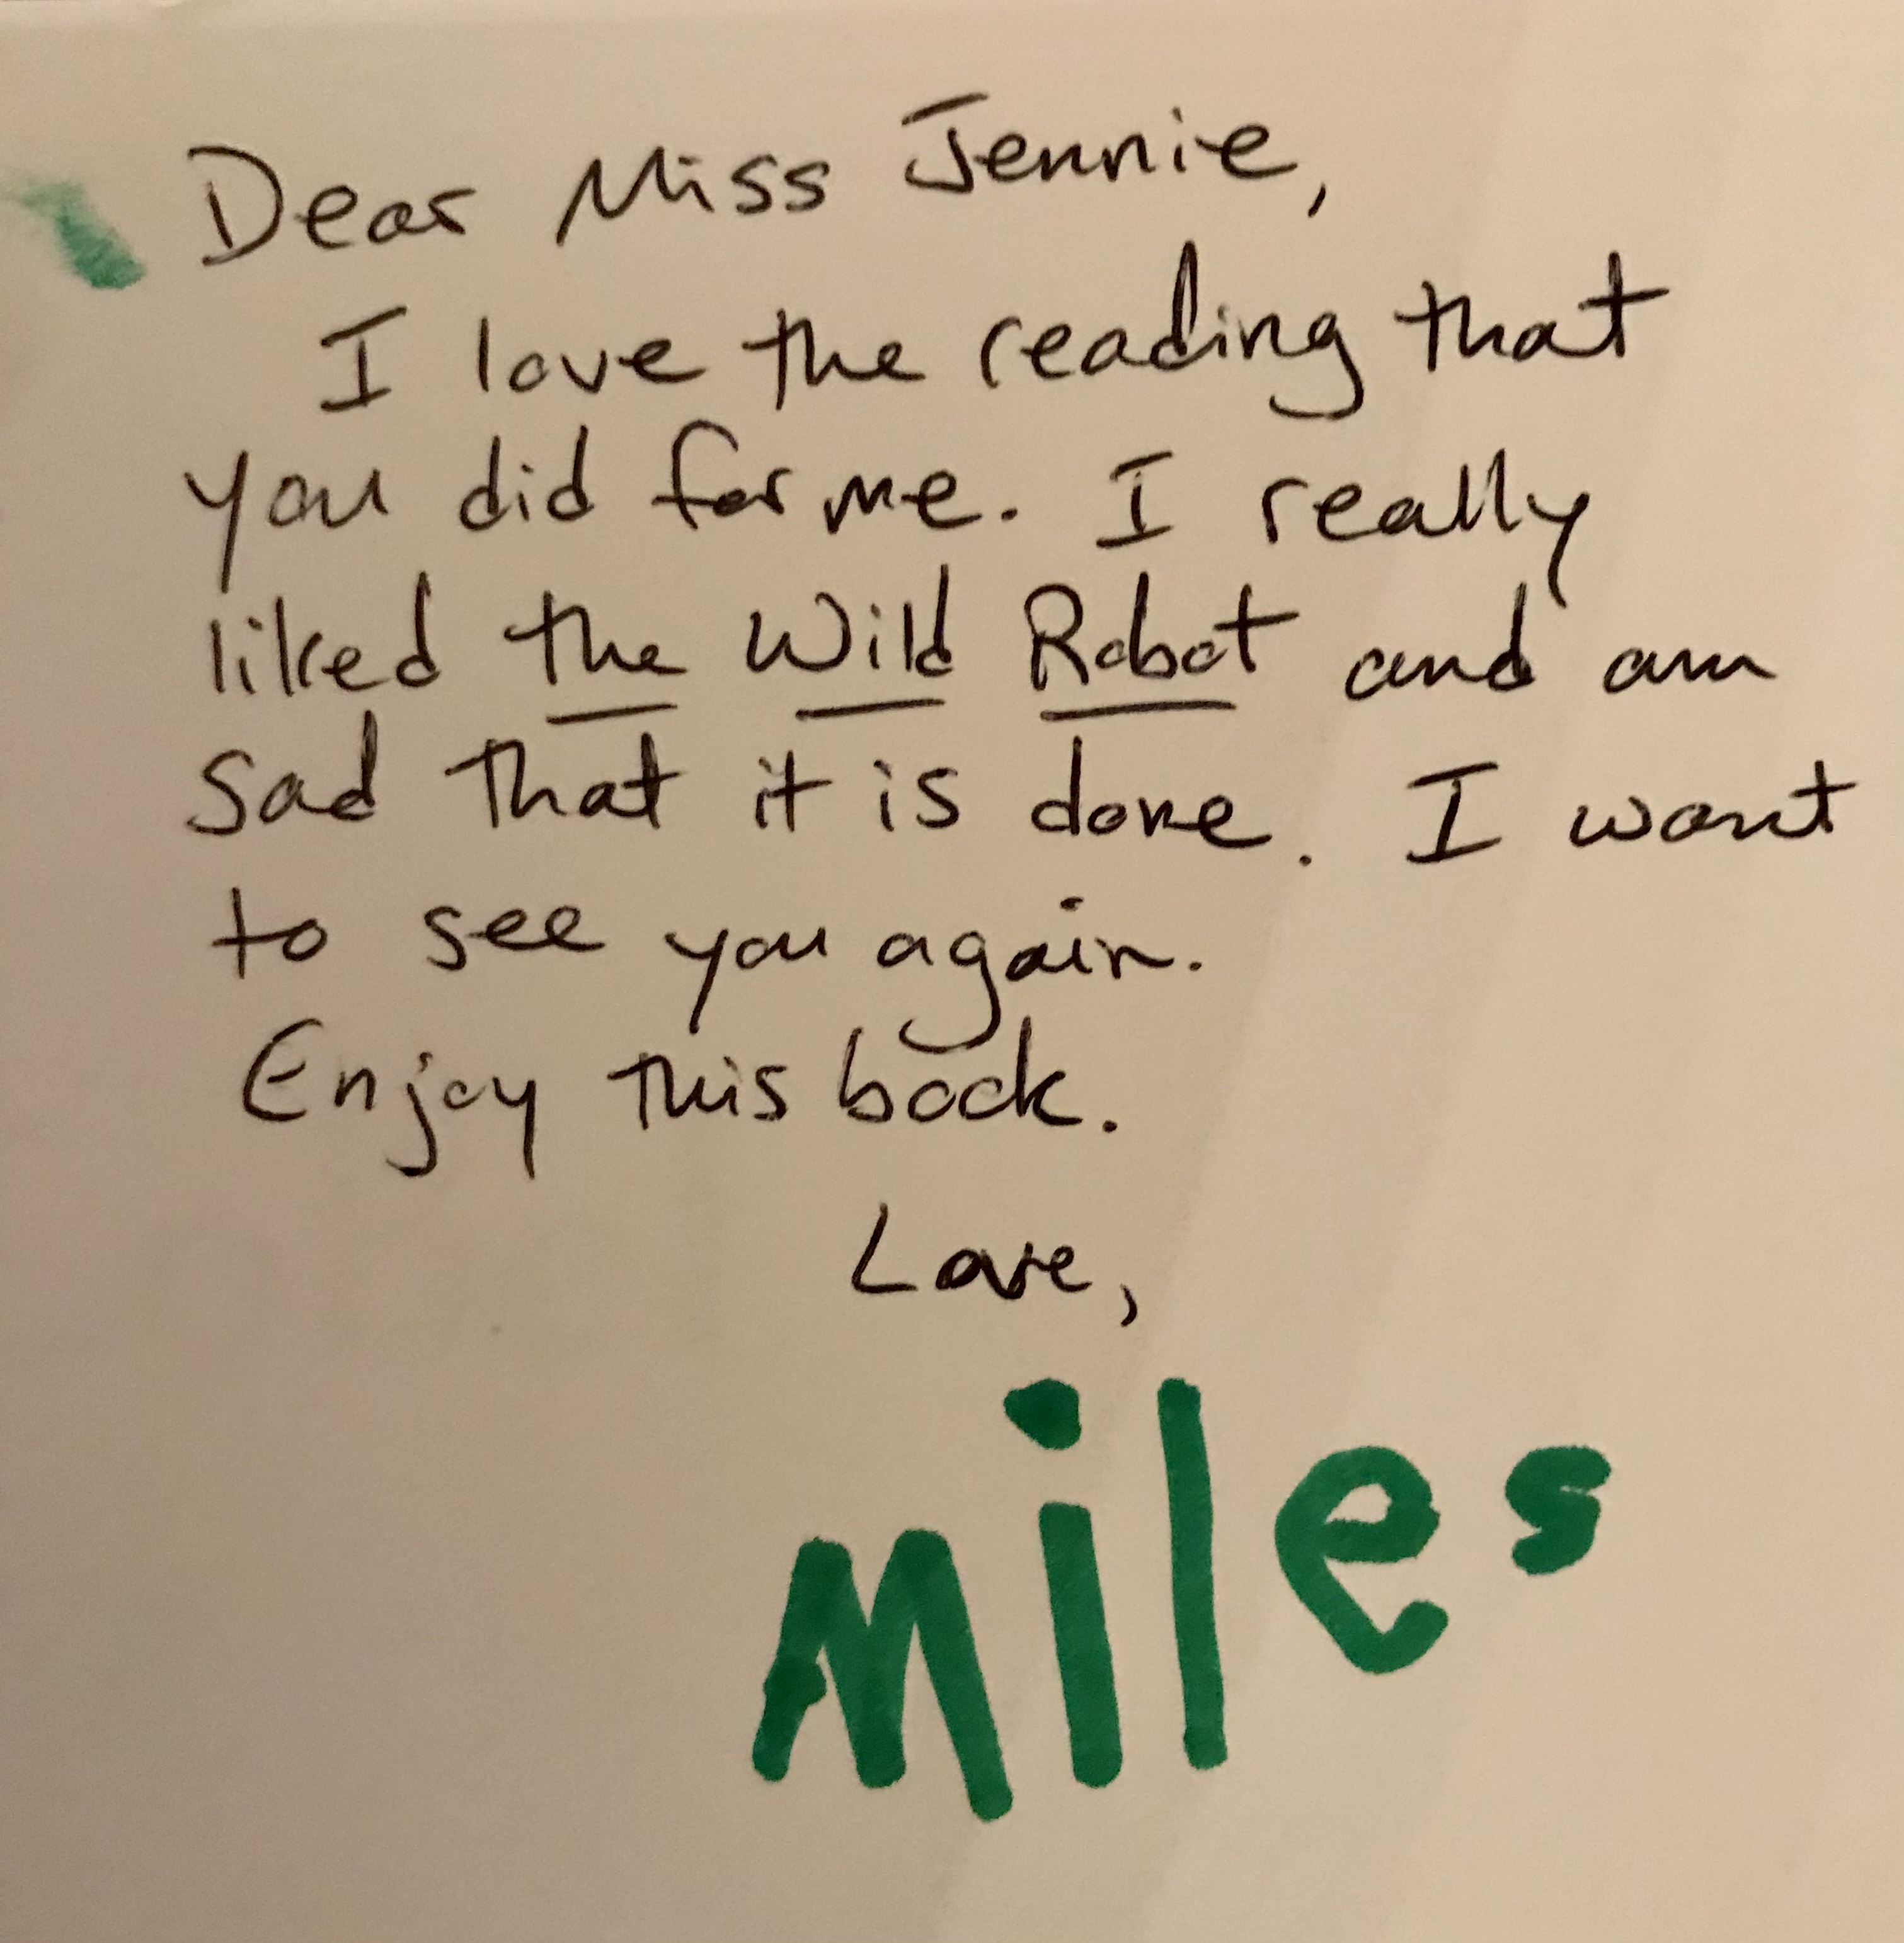 Dear Miss Jennie,
I love the reading that
you did for me. I really
liked the Wild Robot and am
sad that it is done. I want
to see you again.
Enjoy this book.
Love,
Miles